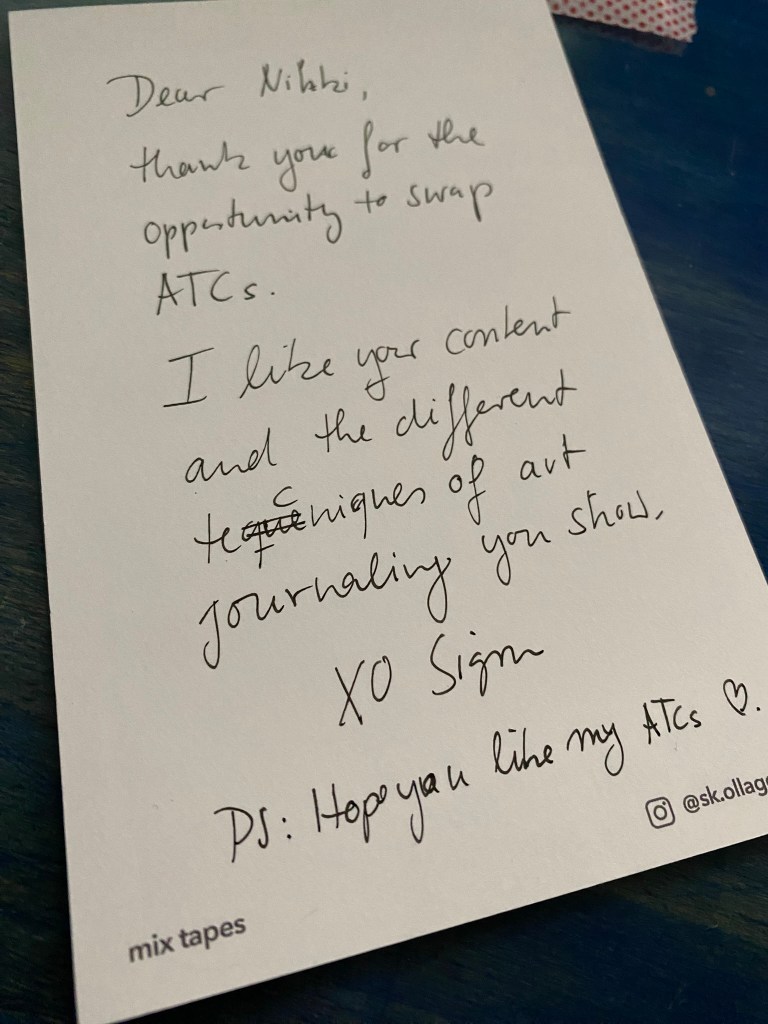 Dear Nikki,
thank you for the
opportunity to swap
ATCs.
I like your content
and the different
techniques of art
journaling you show.
XO
PS: Hope you like my ATCs ♡.
@sk.ollage
mix tapes